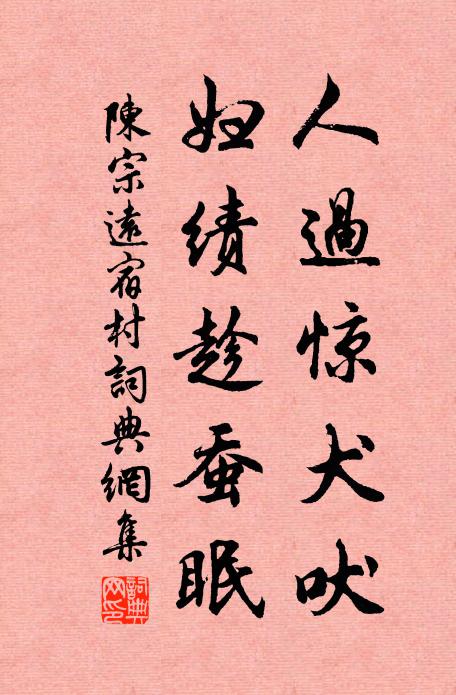 人過惊犬吠
妇绩趁蚕眠
陳宗遠宿村詞典網集
詞典网印